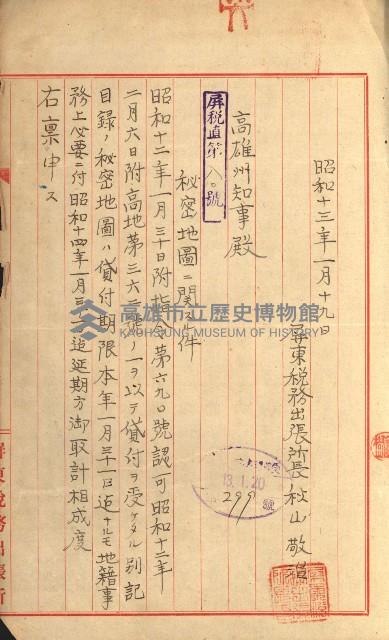 昭和十三年一月十九日
屏東税務出張所長 秋山敬治
高雄州知事殿
屏税直第八〇號
秘密地圖ニ関スル件
昭和十二年一月三十日附指令第六九〇號認可昭和十二年
二月六日附高地第三六二號ノ一ヲ以テ貸付ヲ受ケタル別記
目録ノ秘密地圖ハ貸付期限本年一月三十一日迄ナルモ地籍事
務上必要ニ付昭和十四年一月三十一日迄延期方御取計相成度
右禀申ス
13.1.20
299
號
高雄市立歷史博物館
KAOHSIUNG MUSEUM OF HISTORY
屏東税務出張所